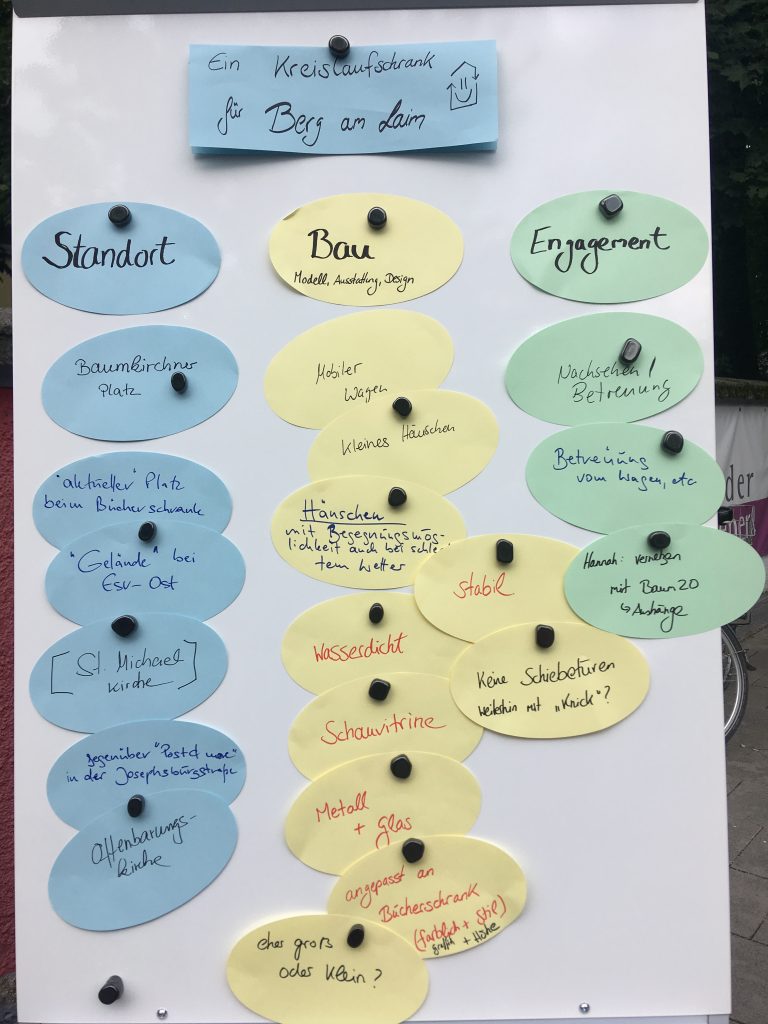 Ein Kreislaufschrank
für Berg am Laim
Standort
Baumkirchner
Platz
"aktueller" Platz
beim Bücherschrank
"Gelände" bei
ESV-Ost
[St. Michael
Kirche]
gegenüber "Post
in der Josephsburgstraße
Offenbarungs-
kirche
Bau
Modell, Ausstattung, Design
Mobiler
Wagen
kleines Häuschen
Häuschen
mit Begegnungsmög-
lichkeit auch bei schlech
tem Wetter
stabil
Wasserdicht
Keine Schiebetüren
weiterhin mit "Knick"?
Schauvitrine
Metall
+ Glas
angepasst an
Bücherschrank
(farblich + Stil)
+ Höhe
eher groß
oder klein?
Engagement
Nachsehen/
Betreuung
Betreuung
vom Wagen, etc
Hannah: vernetzen
mit Baum20
↳ Aushänge
der